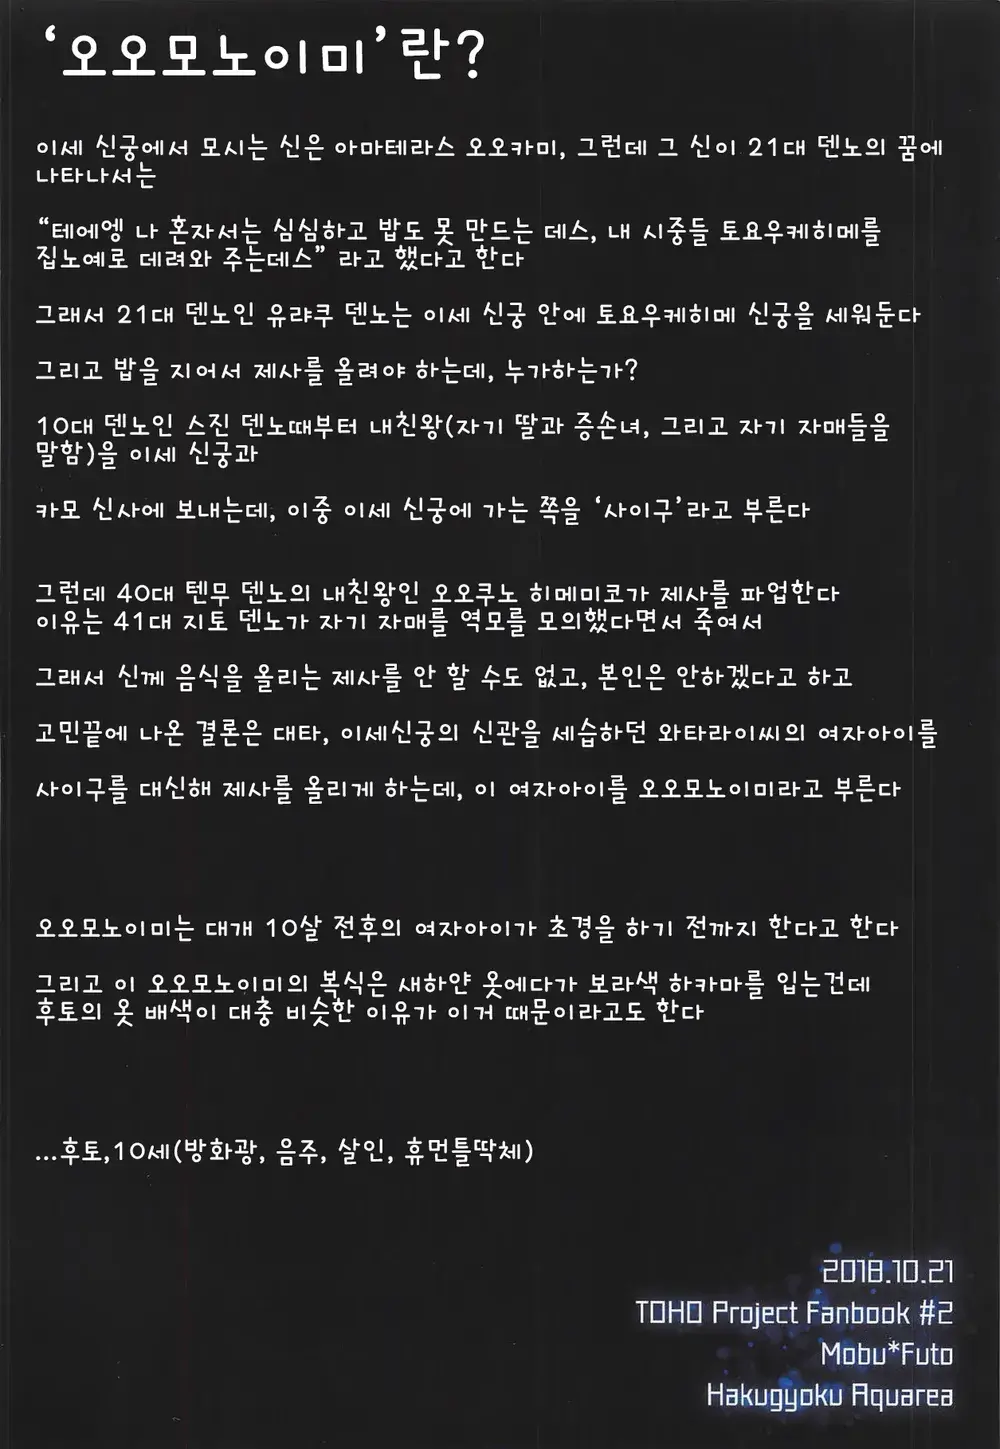 ‘오오모노이미’란?
이세 신궁에서 모시는 신은 아마테라스 오오카미, 그런데 그 신이 21대 덴노의 꿈에
나타나서는
“테에엥 나 혼자서는 심심하고 밥도 못 만드는 데스, 내 시중들 토요우케히메를
집노예로 데려와 주는데스” 라고 했다고 한다
그래서 21대 덴노인 유랴쿠 덴노는 이세 신궁 안에 토요우케히메 신궁을 세워둔다
그리고 밥을 지어서 제사를 올려야 하는데, 누가하는가?
10대 덴노인 스진 덴노때부터 내친왕(자기 딸과 증손녀, 그리고 자기 자매들을
말함)을 이세 신궁과
카모 신사에 보내는데, 이중 이세 신궁에 가는 쪽을 ‘사이구’라고 부른다
그런데 40대 텐무 덴노의 내친왕인 오오쿠노 히메미코가 제사를 파업한다
이유는 41대 지토 덴노가 자기 자매를 역모를 모의했다면서 죽여서
그래서 신께 음식을 올리는 제사를 안 할 수도 없고, 본인은 안하겠다고 하고
고민끝에 나온 결론은 대타, 이세신궁의 신관을 세습하던 와타라이씨의 여자아이를
사이구를 대신해 제사를 올리게 하는데, 이 여자아이를 오오모노이미라고 부른다
오오모노이미는 대개 10살 전후의 여자아이가 초경을 하기 전까지 한다고 한다
그리고 이 오오모노이미의 복식은 새하얀 옷에다가 보라색 하카마를 입는건데
후토의 옷 배색이 대충 비슷한 이유가 이거 때문이라고도 한다
...후토,10세(방화광, 음주, 살인, 휴먼틀딱체)
2018.10.21
TOHO Project Fanbook #2
Mobu*Futo
Hakugyoku Aquarea